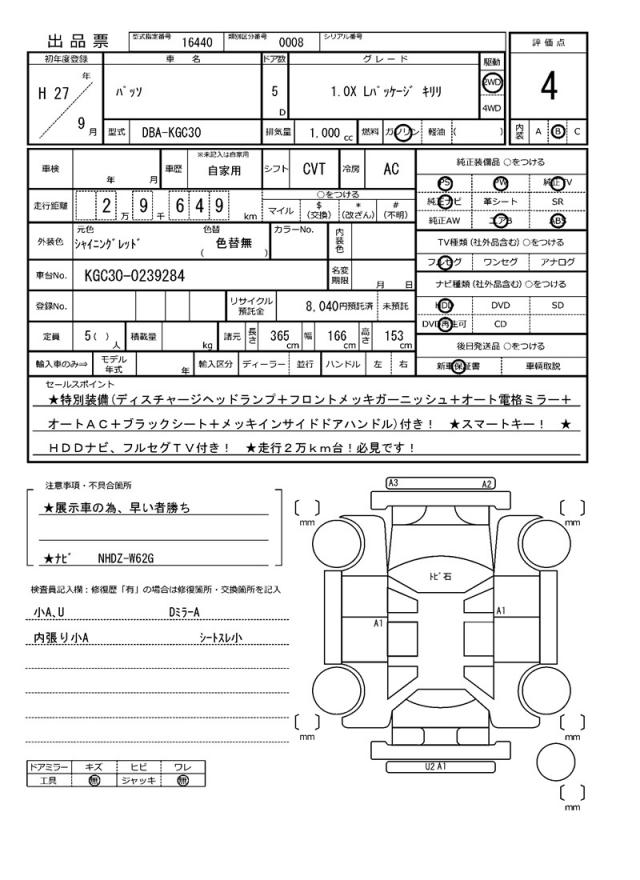 出品票 型式指定番号 16440 類別区分番号 0008 シリアル番号
評価点
4
内装 A B C
初年度登録 車名 ドア数 グレード 駆動
H 27 年 9 月 パッソ 5 D 1.0X Lパッケージ キリリ 2WD 4WD
型式 DBA-KGC30 排気量 1.000 cc 燃料 ガソリン 軽油 ( )
車検 年 月 車歴 ※未記入は自家用 自家用 シフト CVT 冷房 AC
走行距離 2 万 9 千 6 4 9 km ○をつける
マイル $(交換) *(改ざん) #(不明)
外装色 元色 シャイニングレッド 色替 ( 色替無 ) カラーNo. 内装色
車台No. KGC30-0239284 名変期限 月 日
登録No. リサイクル預託金 8,040円預託済 未預託
定員 5( )人 積載量 kg 諸元 長さ 365 cm 幅 166 cm 高さ 153 cm
輸入車のみ⇒ モデル年式 年 輸入区分 ディーラー 並行 ハンドル 左 右
純正装備品 ○をつける
PS PW 純正TV
純正ナビ 革シート SR
純正AW エアB ABS
TV種類(社外品含む) ○をつける
フルセグ ワンセグ アナログ
ナビ種類(社外品含む) ○をつける
HDD DVD SD
DVD再生可 CD
後日発送品 ○をつける
新車保証書 車輌取説
セールスポイント
★特別装備(ディスチャージヘッドランプ＋フロントメッキガーニッシュ＋オート電格ミラー＋
オートAC＋ブラックシート＋メッキインサイドドアハンドル)付き！ ★スマートキー！ ★
HDDナビ、フルセグTV付き！ ★走行2万km台！必見です！
注意事項・不具合箇所
★展示車の為、早い者勝ち
★ナビ NHDZ-W62G
検査員記入欄：修復歴「有」の場合は修復箇所・交換箇所を記入
小A、U DミラーA
内張り小A シートスレ小
ドアミラー キズ ヒビ ワレ
工具 無 ジャッキ 無
A3 A2
[ ] mm
[ ] mm
トビ石
A1
A1
[ ] mm
[ ] mm
U2 A1
[ ] mm